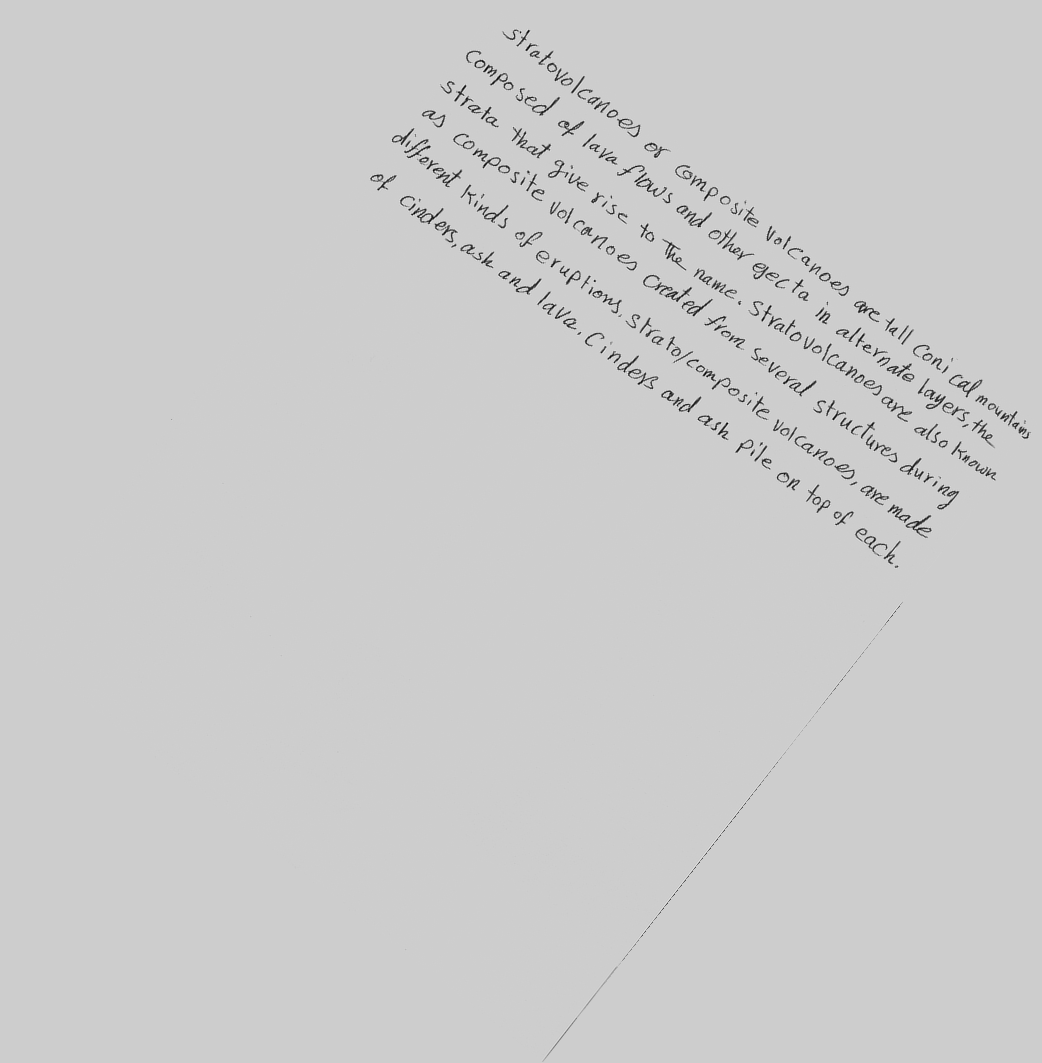 Stratovolcanoes or composite volcanoes are tall conical mountains
composed of lava flows and other ejecta in alternate layers, the
strata that give rise to the name. Stratovolcanoes are also known
as composite volcanoes created from several structures during
different kinds of eruptions. Strato/composite volcanoes, are made
of cinders, ash and lava. Cinders and ash pile on top of each.